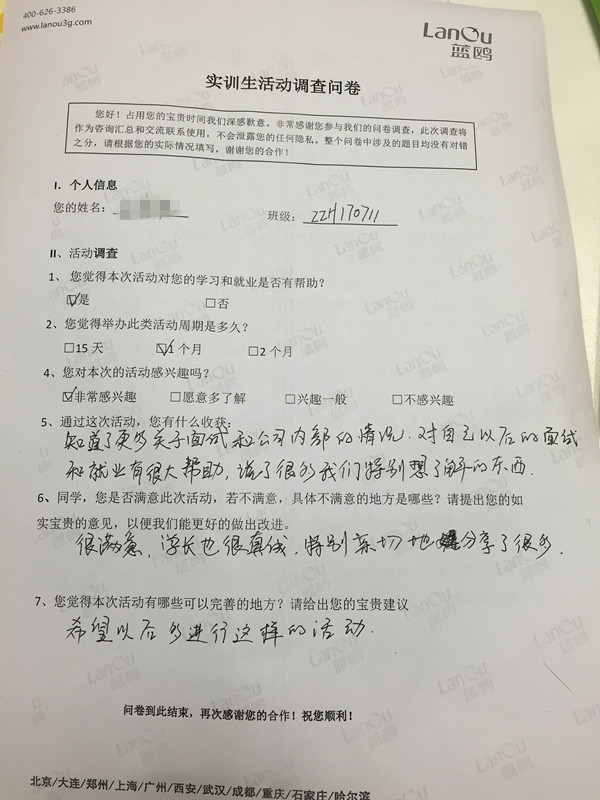 400-626-3386
www.lanou3g.com
LanOu
蓝鸥
实训生活动调查问卷
您好！占用您的宝贵时间我们深感歉意。非常感谢您参与我们的问卷调查，此次调查将
作为咨询汇总和交流联系使用，不会泄露您的任何隐私。整个问卷中涉及的题目均没有对错
之分，请根据您的实际情况填写，谢谢您的合作！
I. 个人信息
您的姓名：
班级：ZZH170711
II、活动调查
1、 您觉得本次活动对您的学习和就业是否有帮助？
☑是 □否
2、您觉得举办此类活动周期是多久？
□15 天 ☑1 个月 □2 个月
4、您对本次的活动感兴趣吗？
☑非常感兴趣 □愿意多了解 □兴趣一般 □不感兴趣
5、通过这次活动，您有什么收获：
知道了更多关于面试和公司内部的情况. 对自己以后的面试
和就业有很大帮助，说了很多我们特别想了解的东西.
6、同学，您是否满意此次活动，若不满意，具体不满意的地方是哪些？请提出您的如
实宝贵的意见，以便我们能更好的做出改进。
很满意，学长也很真诚，特别亲切地分享了很多.
7、您觉得本次活动有哪些可以完善的地方？请给出您的宝贵建议
希望以后多进行这样的活动.
问卷到此结束，再次感谢您的合作！祝您顺利！
北京/大连/郑州/上海/广州/西安/武汉/成都/重庆/石家庄/哈尔滨